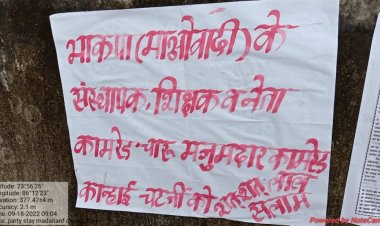 भाकपा (माओवादी) के
संस्थापक, शिक्षक व नेता
कामरेड चारू मजुमदार कामरेड
कान्हाई चटर्जी को शत-शत लाल
सलाम
itude: 23°56'26"
gitude: 86°12'23"
vation: 377.47±4 m
curacy: 2.1 m
me: 09-18-2022 09:04
te: party stay madaitanr
Powered by NoteCam